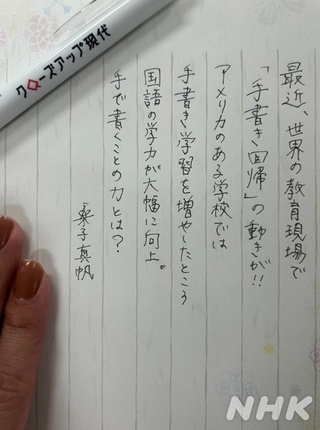 クローズアップ現代
最近、世界の教育現場で
「手書き回帰」の動きが!!
アメリカのある学校では
手書き学習を増やしたところ
国語の学力が大幅に向上。
手で書くことの力とは?
桑子真帆
NHK